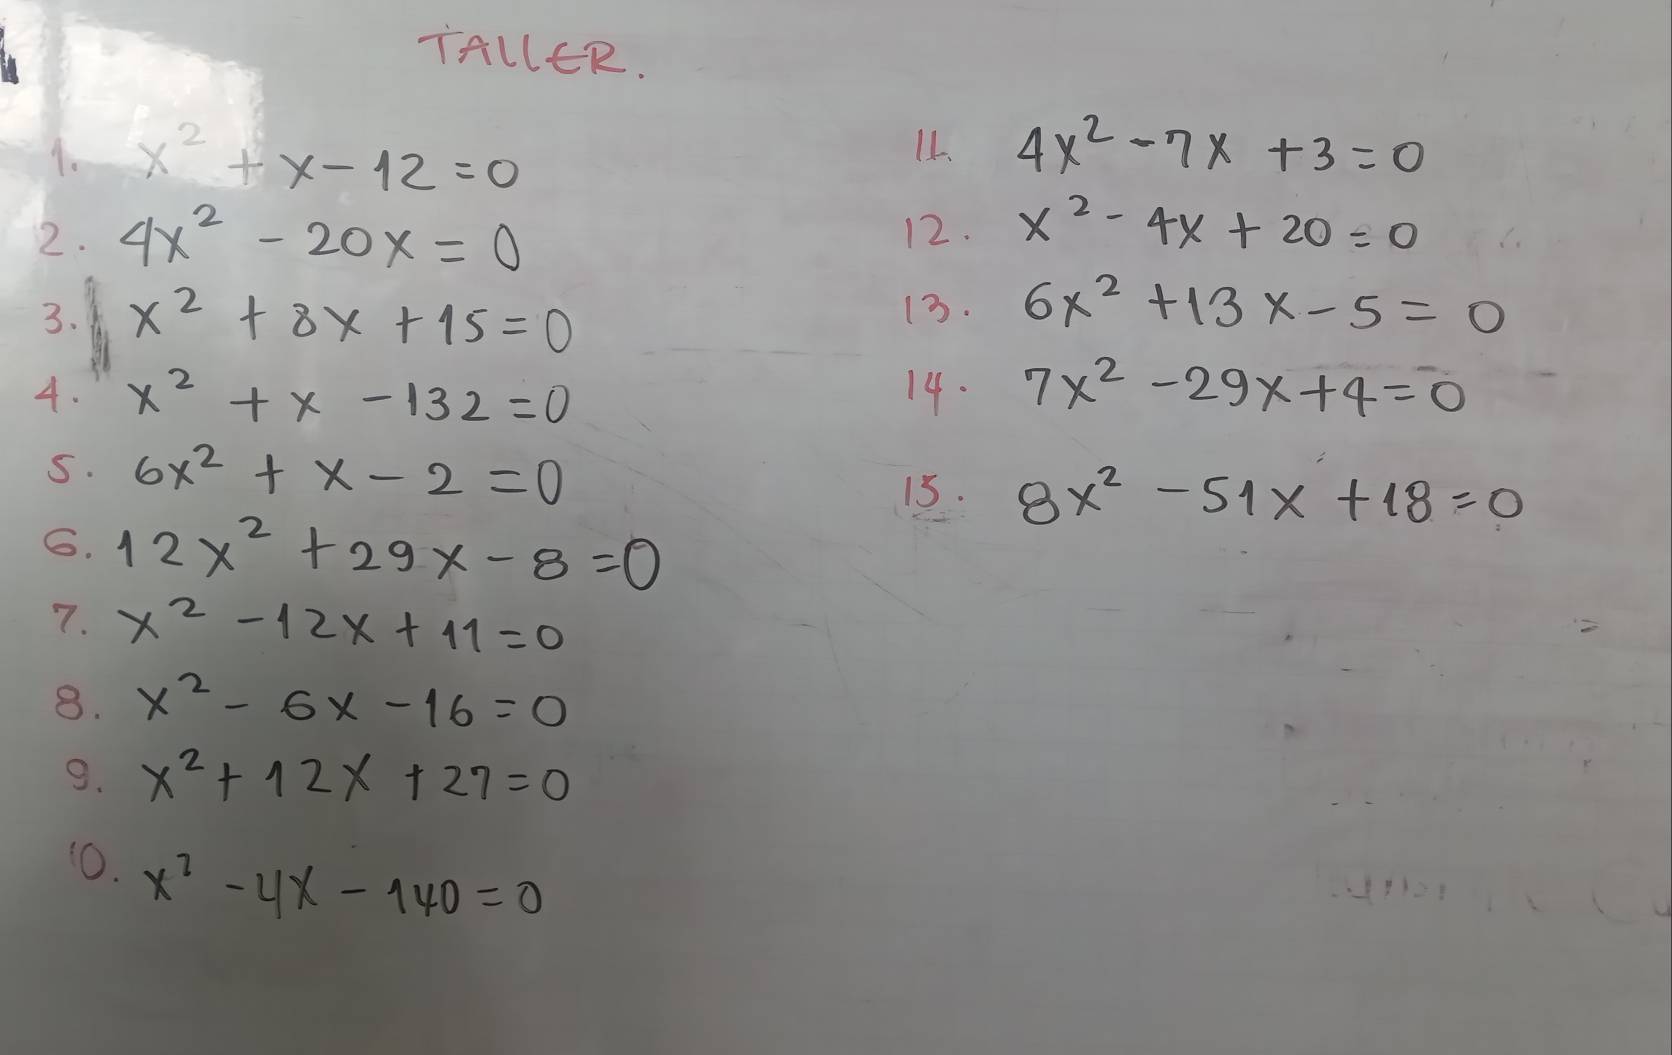 TALLER.
1. x² + x - 12 = 0
2. 4x² - 20x = 0
3. x² + 8x + 15 = 0
4. x² + x - 132 = 0
5. 6x² + x - 2 = 0
6. 12x² + 29x - 8 = 0
7. x² - 12x + 11 = 0
8. x² - 6x - 16 = 0
9. x² + 12x + 27 = 0
10. x² - 4x - 140 = 0
11. 4x² - 7x + 3 = 0
12. x² - 4x + 20 = 0
13. 6x² + 13x - 5 = 0
14. 7x² - 29x + 4 = 0
15. 8x² - 51x + 18 = 0